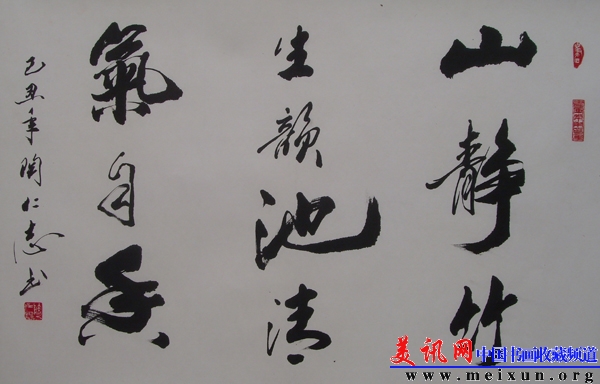 山静竹
生韻池清
氣自香
己丑年陶仁志书
美讯网 中国书画收藏频道
www.meixun.org